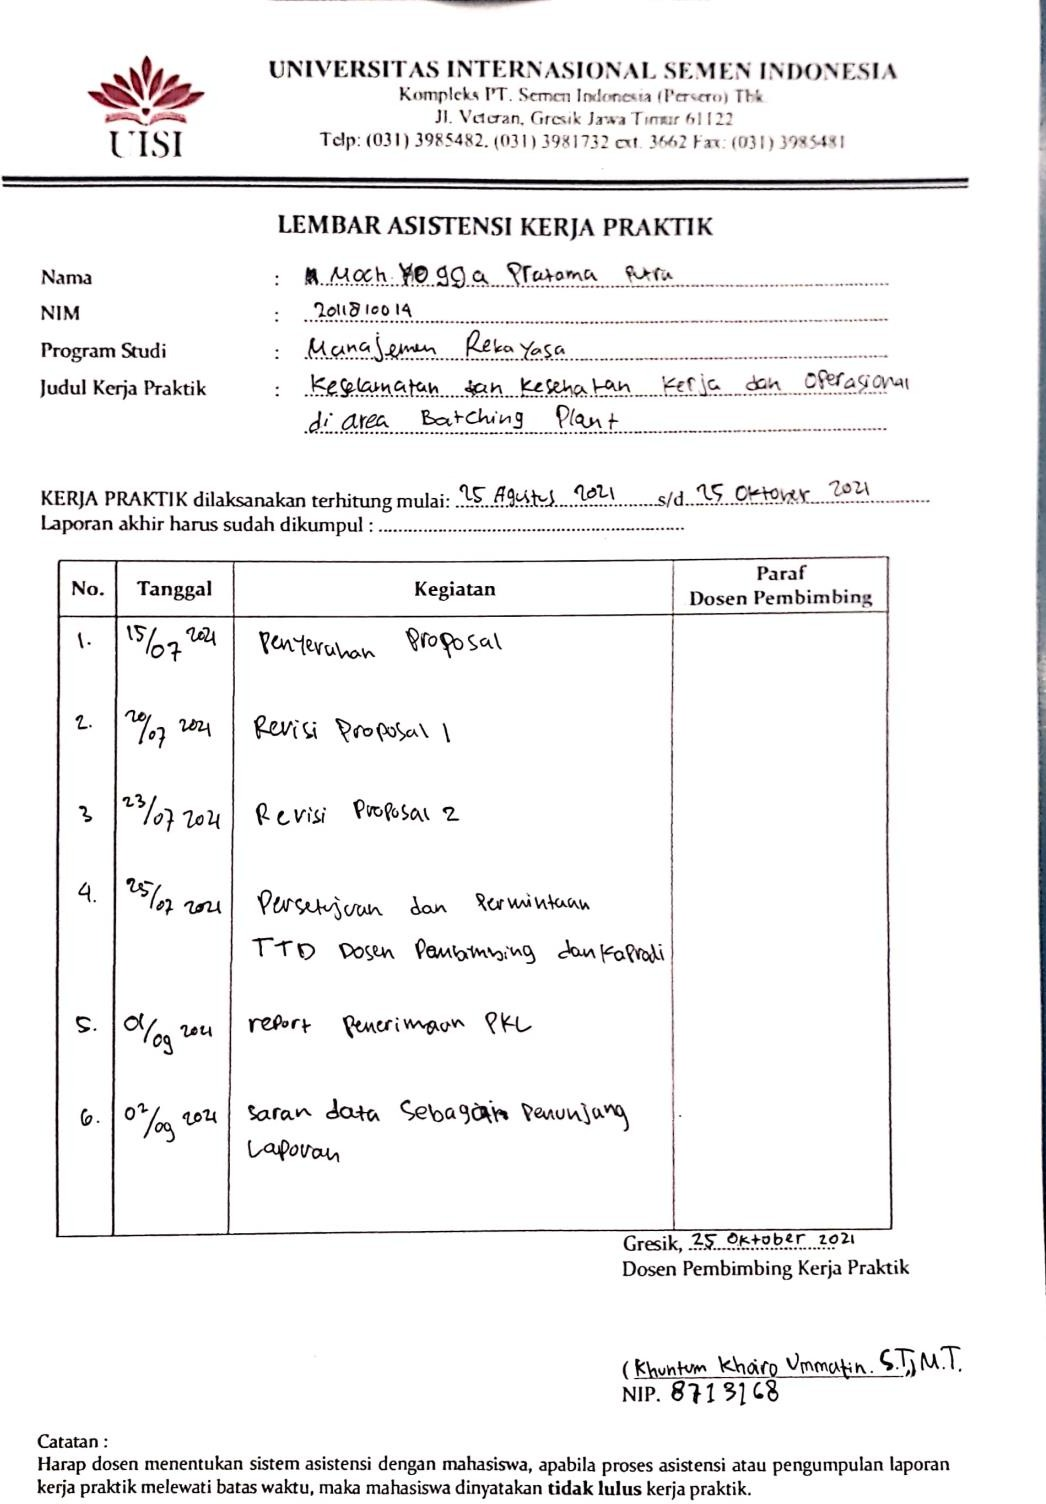 UISI
UNIVERSITAS INTERNASIONAL SEMEN INDONESIA
Kompleks PT. Semen Indonesia (Persero) Tbk
Jl. Veteran, Gresik Jawa Timur 61122
Telp: (031) 3985482, (031) 3981732 ext. 3662 Fax: (031) 3985481
LEMBAR ASISTENSI KERJA PRAKTIK
Nama : Moch Yogga Pratama Putra
NIM : 2011810019
Program Studi : Manajemen Rekayasa
Judul Kerja Praktik : Keselamatan dan Kesehatan Kerja dan Operasional
di area Batching Plant
KERJA PRAKTIK dilaksanakan terhitung mulai: 25 Agustus 2021 s/d 25 Oktober 2021
Laporan akhir harus sudah dikumpul :
No. Tanggal Kegiatan Paraf Dosen Pembimbing
1. 15/07 2021 Penyerahan Proposal
2. 20/07 2021 Revisi Proposal 1
3 23/07 2021 Revisi Proposal 2
4. 25/07 2021 Persetujuan dan Permintaan
TTD Dosen Pembimbing dan Kaprodi
5. 01/09 2021 report Penerimaan PKL
6. 02/09 2021 Saran data Sebagai Penunjang
Laporan
Gresik, 25 Oktober 2021
Dosen Pembimbing Kerja Praktik
(Khuntum Khairo Ummatin. S.T., M.T.
NIP. 8713168
Catatan :
Harap dosen menentukan sistem asistensi dengan mahasiswa, apabila proses asistensi atau pengumpulan laporan
kerja praktik melewati batas waktu, maka mahasiswa dinyatakan tidak lulus kerja praktik.